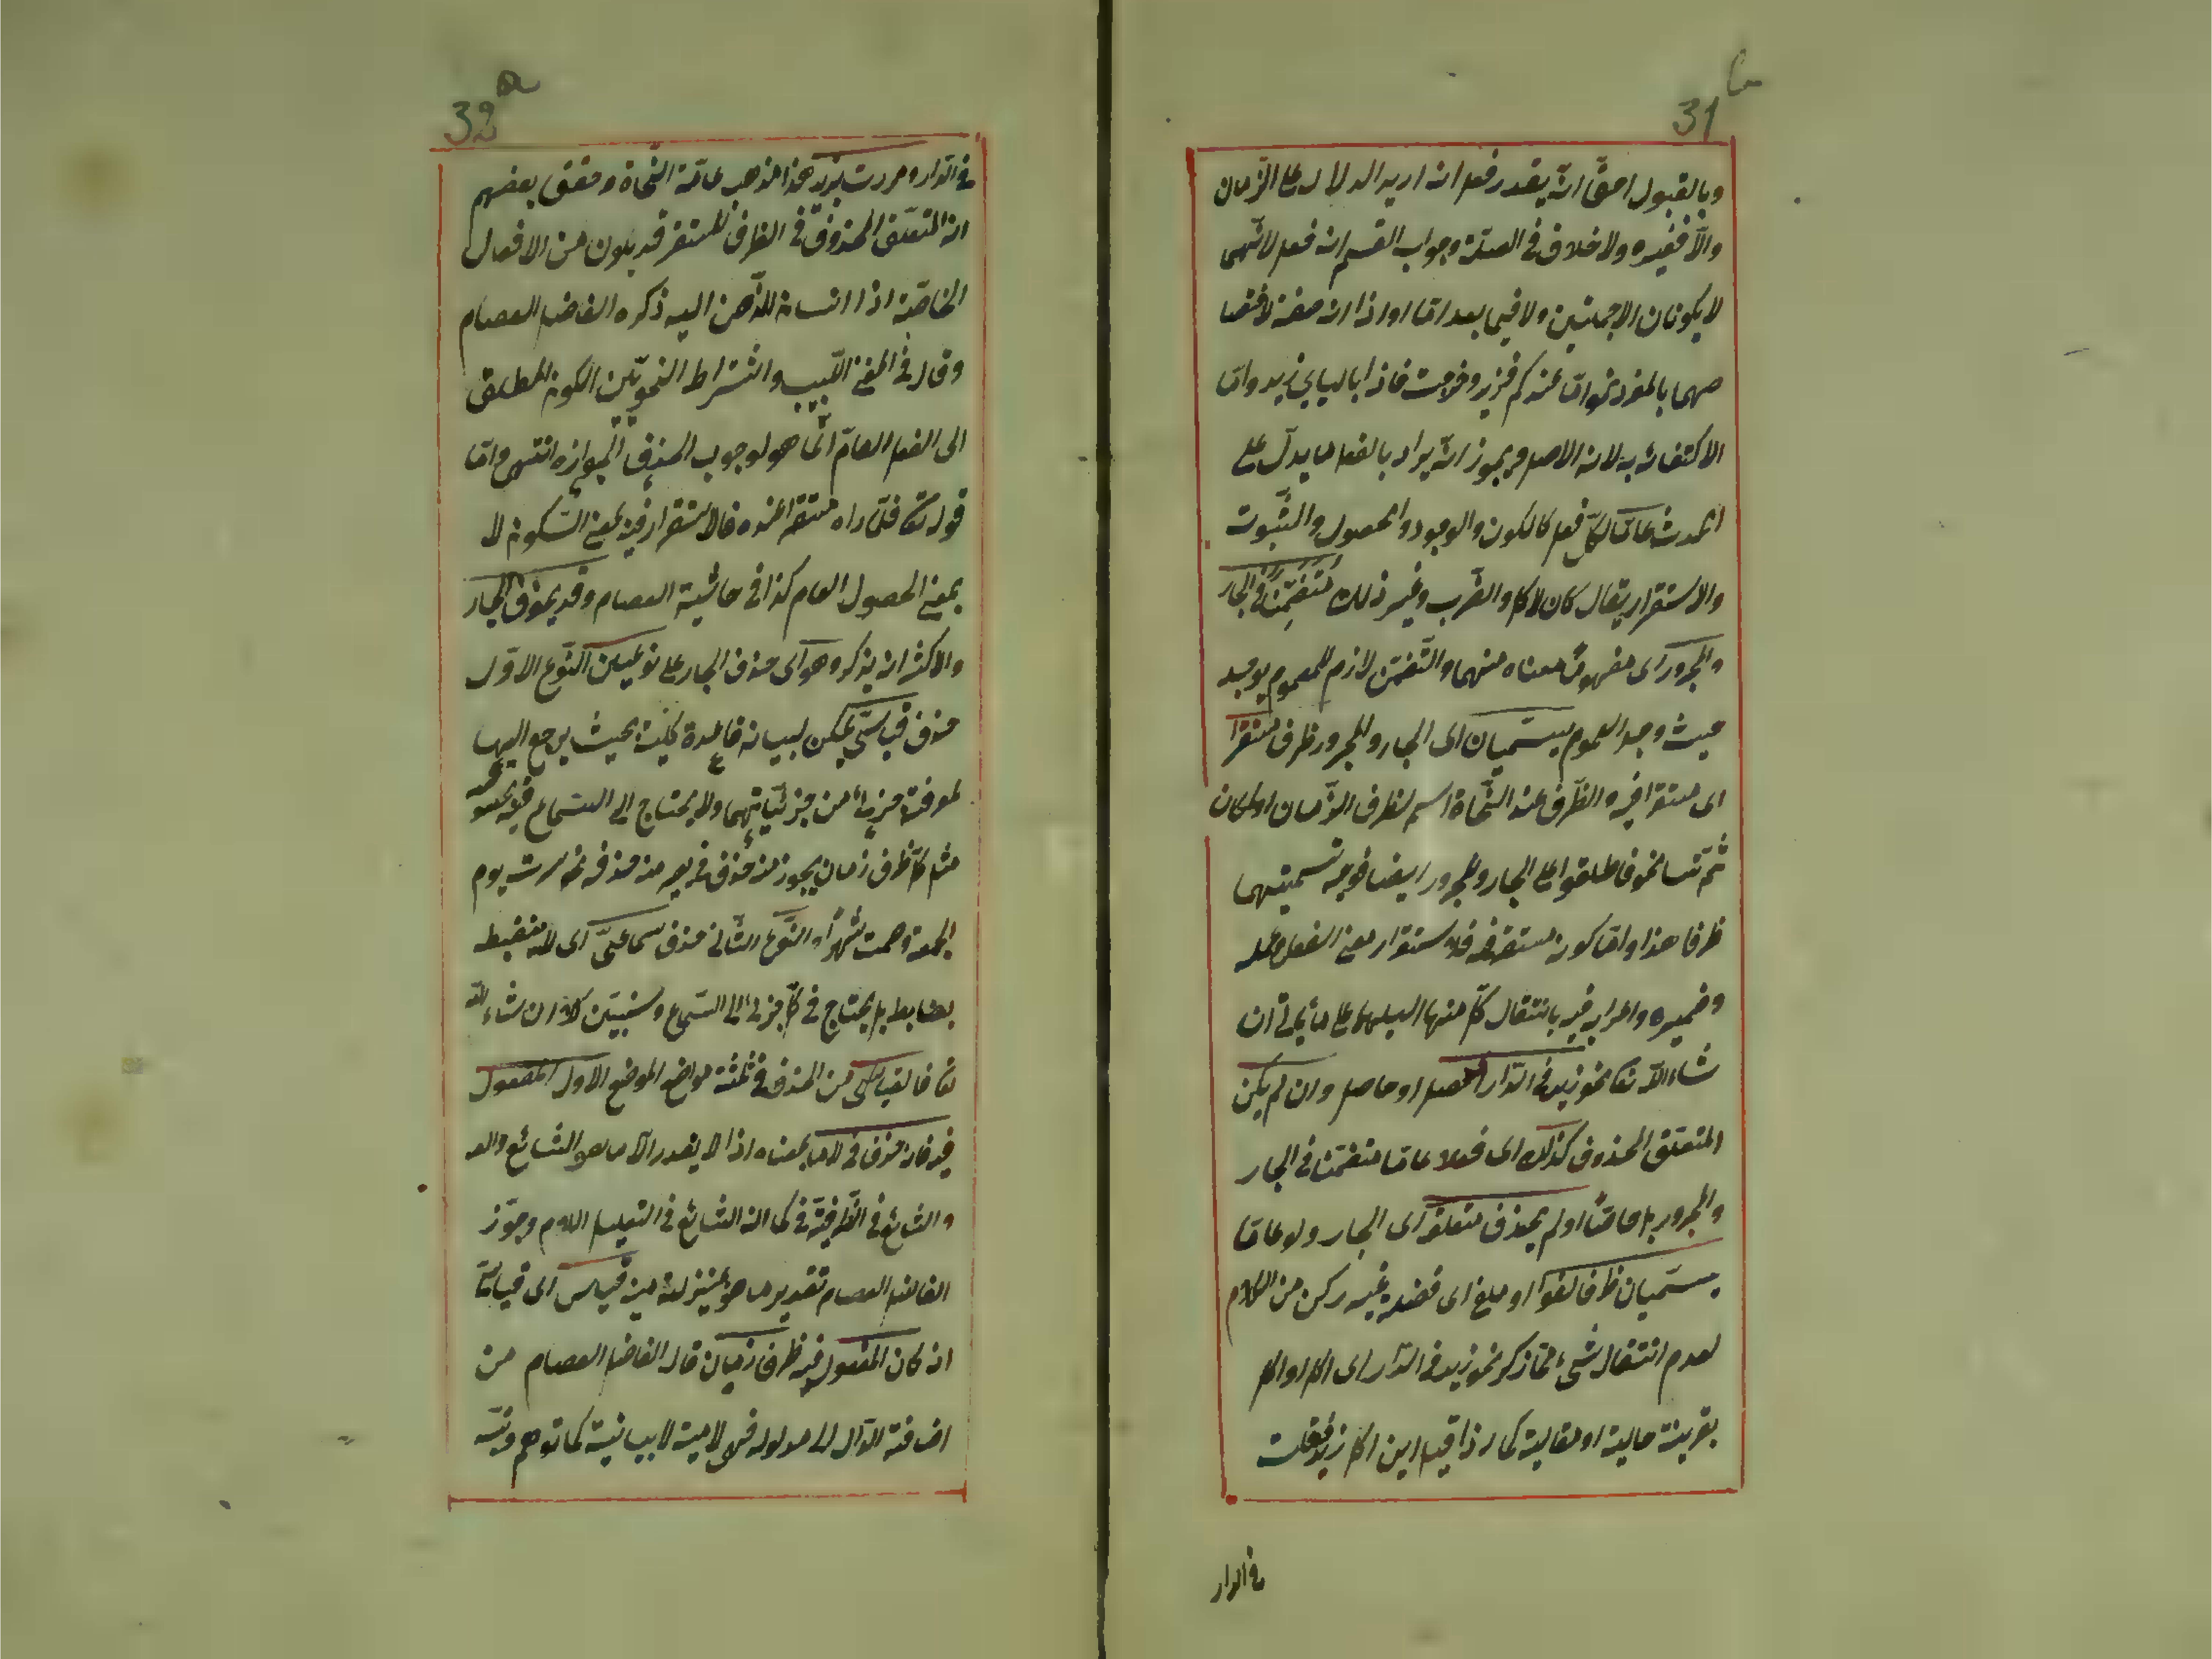 31 b
وبالقبول احق انه يقدر فعل ان اريد الدلالة على الزمان
والا فغيره ولا خلاف في الصلة وجواب القسم انه فعل لانهما
لا يكونان الا جملتين ولا فيما بعد اما او اذا انه صفة لاختصا
صهما بالمفرد نحو اما عندكم فزيد وخرجت فاذا بالباب زيد واما
الاكتفاء به لانه الاصل ويجوز انه يراد بالفعل ما يدل على
الحدث عاما لكل فعل كالكون والوجود والحصول والثبوت
والاستقرار يقال كان الاكل والضرب وغير ذلك متضمنا في الجار
والمجرور اى مفهوما معناه منهما والتضمن لازم للعموم يوجد
حيث وجد العموم يسميان اى الجار والمجرور ظرفا مستقرا
اى مستقرا فيه والظرف عند النحاة اسم لظرف الزمان او المكان
ثم تسامحوا فاطلقوا على الجار والمجرور ايضا فوجه تسميتهما
ظرفا هذا واما كونه مستقرا فيه فلاستقرار معنى الفعل وعمله
وضميره واعرابه فيه بانتقال كل منها اليهما على ما يأتى ان
شاء الله تعا نحو زيد في الدار اى حصل او حاصل وان لم يكن
المتعلق المحذوف كذلك اى فعلا عاما متضمنا في الجار
والمجرور بل خاصا او لم يحذف متعلق اى الجار ولو عاما
يسميان ظرفا لغوا او ملغى اى فضلة غير ركن من الكلام
لعدم انتقال شئ مما ذكر نحو زيد في الدار اى اكل او اكل
بقرينة حالية او مقالية كما اذا قيل اين اكل زيد فقلت
في الدار
32 a
في الدار ومررت بزيد هذا مذهب عامة النحاة وحقق بعضهم
ان المتعلق المحذوف في الظرف المستقر قد يكون من الافعال
الخاصة اذا انساق الذهن اليه ذكره الفاضل العصام
وقال في المغنى اللبيب واشتراط النحويين الكون المطلق
الى الفعل العام انما هو لوجوب الحذف لا لجوازه انتهى واما
قوله تعا فلما راه مستقرا عنده فالاستقرار فيه بمعنى السكون لا
بمعنى الحصول العام كذا في حاشية العصام وقد يحذف الجار
والاكثر ان يذكر وهو اى حذف الجار على نوعين النوع الاول
حذف قياسي يمكن لبيانه قاعدة كلية بحيث يرجع اليها
لمعرفة جزئى من جزئياتها ولا يحتاج الى السماع فيه
مثل كل ظرف زمان يجوز منه حذف في منه حذفه نحو سرت يوم
الجمعة وصمت شهرا والنوع الثاني حذف سماعى اى لا ينضبط
بضابط بل يحتاج في كل جزئى الى السماع وسنبين كلا ان شاء الله
تعا فالقياسى من الحذف في ثلثة مواضع الموضع الاول المفعول
فيه فان حذف في لا ما بمعناه اذ لا يقدر الا ما هو الشائع
والشائع في الظرفية في كما ان الشائع في التعليل اللام وجوز
الفاضل العصام تقدير ما هو بمنزلة فيه قياس اى قياسا
ان كان المفعول فيه ظرف زمان قال الفاضل العصام من
اضافة الدال الى مدلوله فهى لامية لا بيانية كما توهم